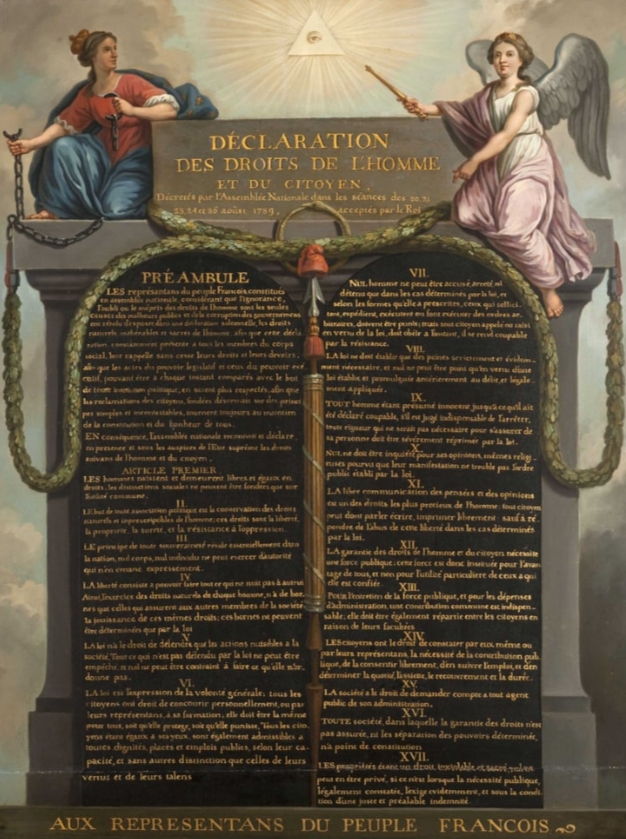 DÉCLARATION
DES DROITS DE L'HOMME
ET DU CITOYEN,
Décretés par l'Assemblée Nationale dans les séances des 20, 21
23, 24 et 26 août, 1789, acceptés par le Roi
PRÉAMBULE
LES représentans du peuple François constitués
en assemblée nationale, considérant que l'ignorance,
l'oubli ou le mépris des droits de l'homme sont les seules
causes des malheurs publics et de la corruption des gouvernemens
ont résolu d'exposer dans une déclaration solemnelle, les droits
naturels, inaliénables et sacrés de l'homme; afin que cette décla
ration, constamment présente à tous les membres du corps
social, leur rappelle sans cesse leurs droits et leurs devoirs,
afin que les actes du pouvoir législatif et ceux du pouvoir exé
cutif, pouvant être à chaque instant comparés avec le but
de toute institution politique, en soient plus respectés; afin que
les réclamations des citoyens, fondées désormais sur des princi
pes simples et incontestables, tournent toujours au maintien
de la constitution et du bonheur de tous.
EN conséquence, l'assemblée nationale reconnoit et déclare,
en presence et sous les auspices de l'Etre suprême les droits
suivans de l'homme et du citoyen.
ARTICLE PREMIER
LES hommes naissent et demeurent libres et égaux en
droits, les distinctions sociales ne peuvent être fondées que sur
l'utilité commune.
II.
LE but de toute association politique est la conservation des droits
naturels et imprescriptibles de l'homme; ces droits sont la liberté,
la propriété, la sureté, et la résistance à l'oppression.
III
LE principe de toute souveraineté réside essentiellement dans
la nation, nul corps, nul individu ne peut exercer d'autorité
qui n'en émane expressement.
IV
LA liberté consiste a pouvoir faire tout ce qui ne nuit pas à autrui
Ainsi, l'exercice des droits naturels de chaque homme, n'a de bor
nes que celles qui assurent aux autres membres de la société
la jouissance de ces mêmes droits; ces bornes ne peuvent
être déterminées que par la loi
V.
LA loi n'a le droit de défendre que les actions nuisibles a la
société. Tout ce qui n'est pas défendu par la loi ne peut être
empêché, et nul ne peut être contraint à faire ce qu'elle n'or-
donne pas.
VI.
LA loi est l'expression de la volonté générale; tous les
citoyens ont droit de concourir personnellement, ou par
leurs représentans, à sa formation; elle doit être la même
pour tous, soit qu'elle protege, soit qu'elle punisse, Tous les cito
yens étant égaux à ses yeux, sont également admissibles à
toutes dignités, places et emplois publics, selon leur ca-
pacité, et sans autres distinction que celles de leurs
vertus et de leurs talens
VII.
NUL homme ne peut être accusé, arreté, ni
détenu que dans les cas déterminés par la loi, et
selon les formes qu'elle a prescrites, ceux qui sollici-
tent, expédient, exécutent ou font exécuter des ordres ar-
bitraires, doivent être punis; mais tout citoyen appelé ou saisi
en vertu de la loi, doit obéir a l'instant, il se rend coupable
par la résistance.
VIII.
LA loi ne doit établir que des peines strictement et évidem-
ment nécessaire, et nul ne peut être puni qu'en vertu d'une
loi établie et promulguée antérieurement au délit, et légale
ment appliquée.
IX.
TOUT homme étant présumé innocent jusqu'a ce qu'il ait
été déclaré coupable, s'il est jugé indispensable de l'arrêter,
toute rigueur qui ne serait pas nécessaire pour s'assurer de
sa personne doit être sévèrement réprimée par la loi.
X.
NUL ne doit être inquiété pour ses opinions, mêmes reli-
gieuses pourvu que leur manifestation ne trouble pas l'ordre
public établi par la loi.
XI.
LA libre communication des pensées et des opinions
est un des droits les plus precieux de l'homme: tout citoyen
peut donc parler écrire, imprimer librement: sauf à ré-
pondre de l'abus de cette liberté dans les cas déterminés
par la loi.
XII.
LA garantie des droits de l'homme et du citoyen nécessite
une force publique; cette force est donc instituée pour l'avan
tage de tous, et non pour l'utilité particuliere de ceux a qui
elle est confiée.
XIII.
Pour l'entretien de la force publique, et pour les dépenses
d'administration, une contribution commune est indispen-
sable, elle doit être également répartie entre les citoyens en
raison de leurs facultées.
XIV.
LES citoyens ont le droit de constater par eux même ou
par leurs représentans, la nécessité de la contribution pub
lique, de la consentir librement, d'en suivre l'emploi, et d'en
déterminer la quotité, l'assiette, le recouvrement et la durée.
XV.
LA société a le droit de demander compte a tout agent
public de son administration.
XVI.
TOUTE société, dans laquelle la garantie des droits n'est
pas assurée, ni les séparation des pouvoirs déterminée,
n'a point de constitution
XVII.
LES propriétés étant un droit inviolable et sacré, nul ne
peut en être privé, si ce n'est lorsque la nécessité publique,
légalement constatée, l'exige evidemment, et sous la condi
tion d'une juste et préalable indemnité.
AUX REPRESENTANS DU PEUPLE FRANCOIS